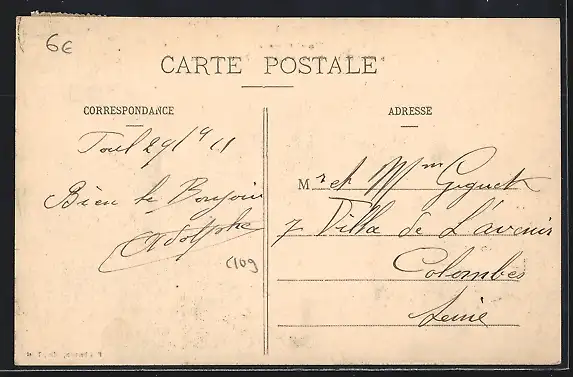 6€
CARTE POSTALE
CORRESPONDANCE
Toul 29/9 11
Bien le Bonjour
Adolphe
C109
ADRESSE
Mr et Mme Giguet
7 Villa de L'avenir
Colombes
Seine